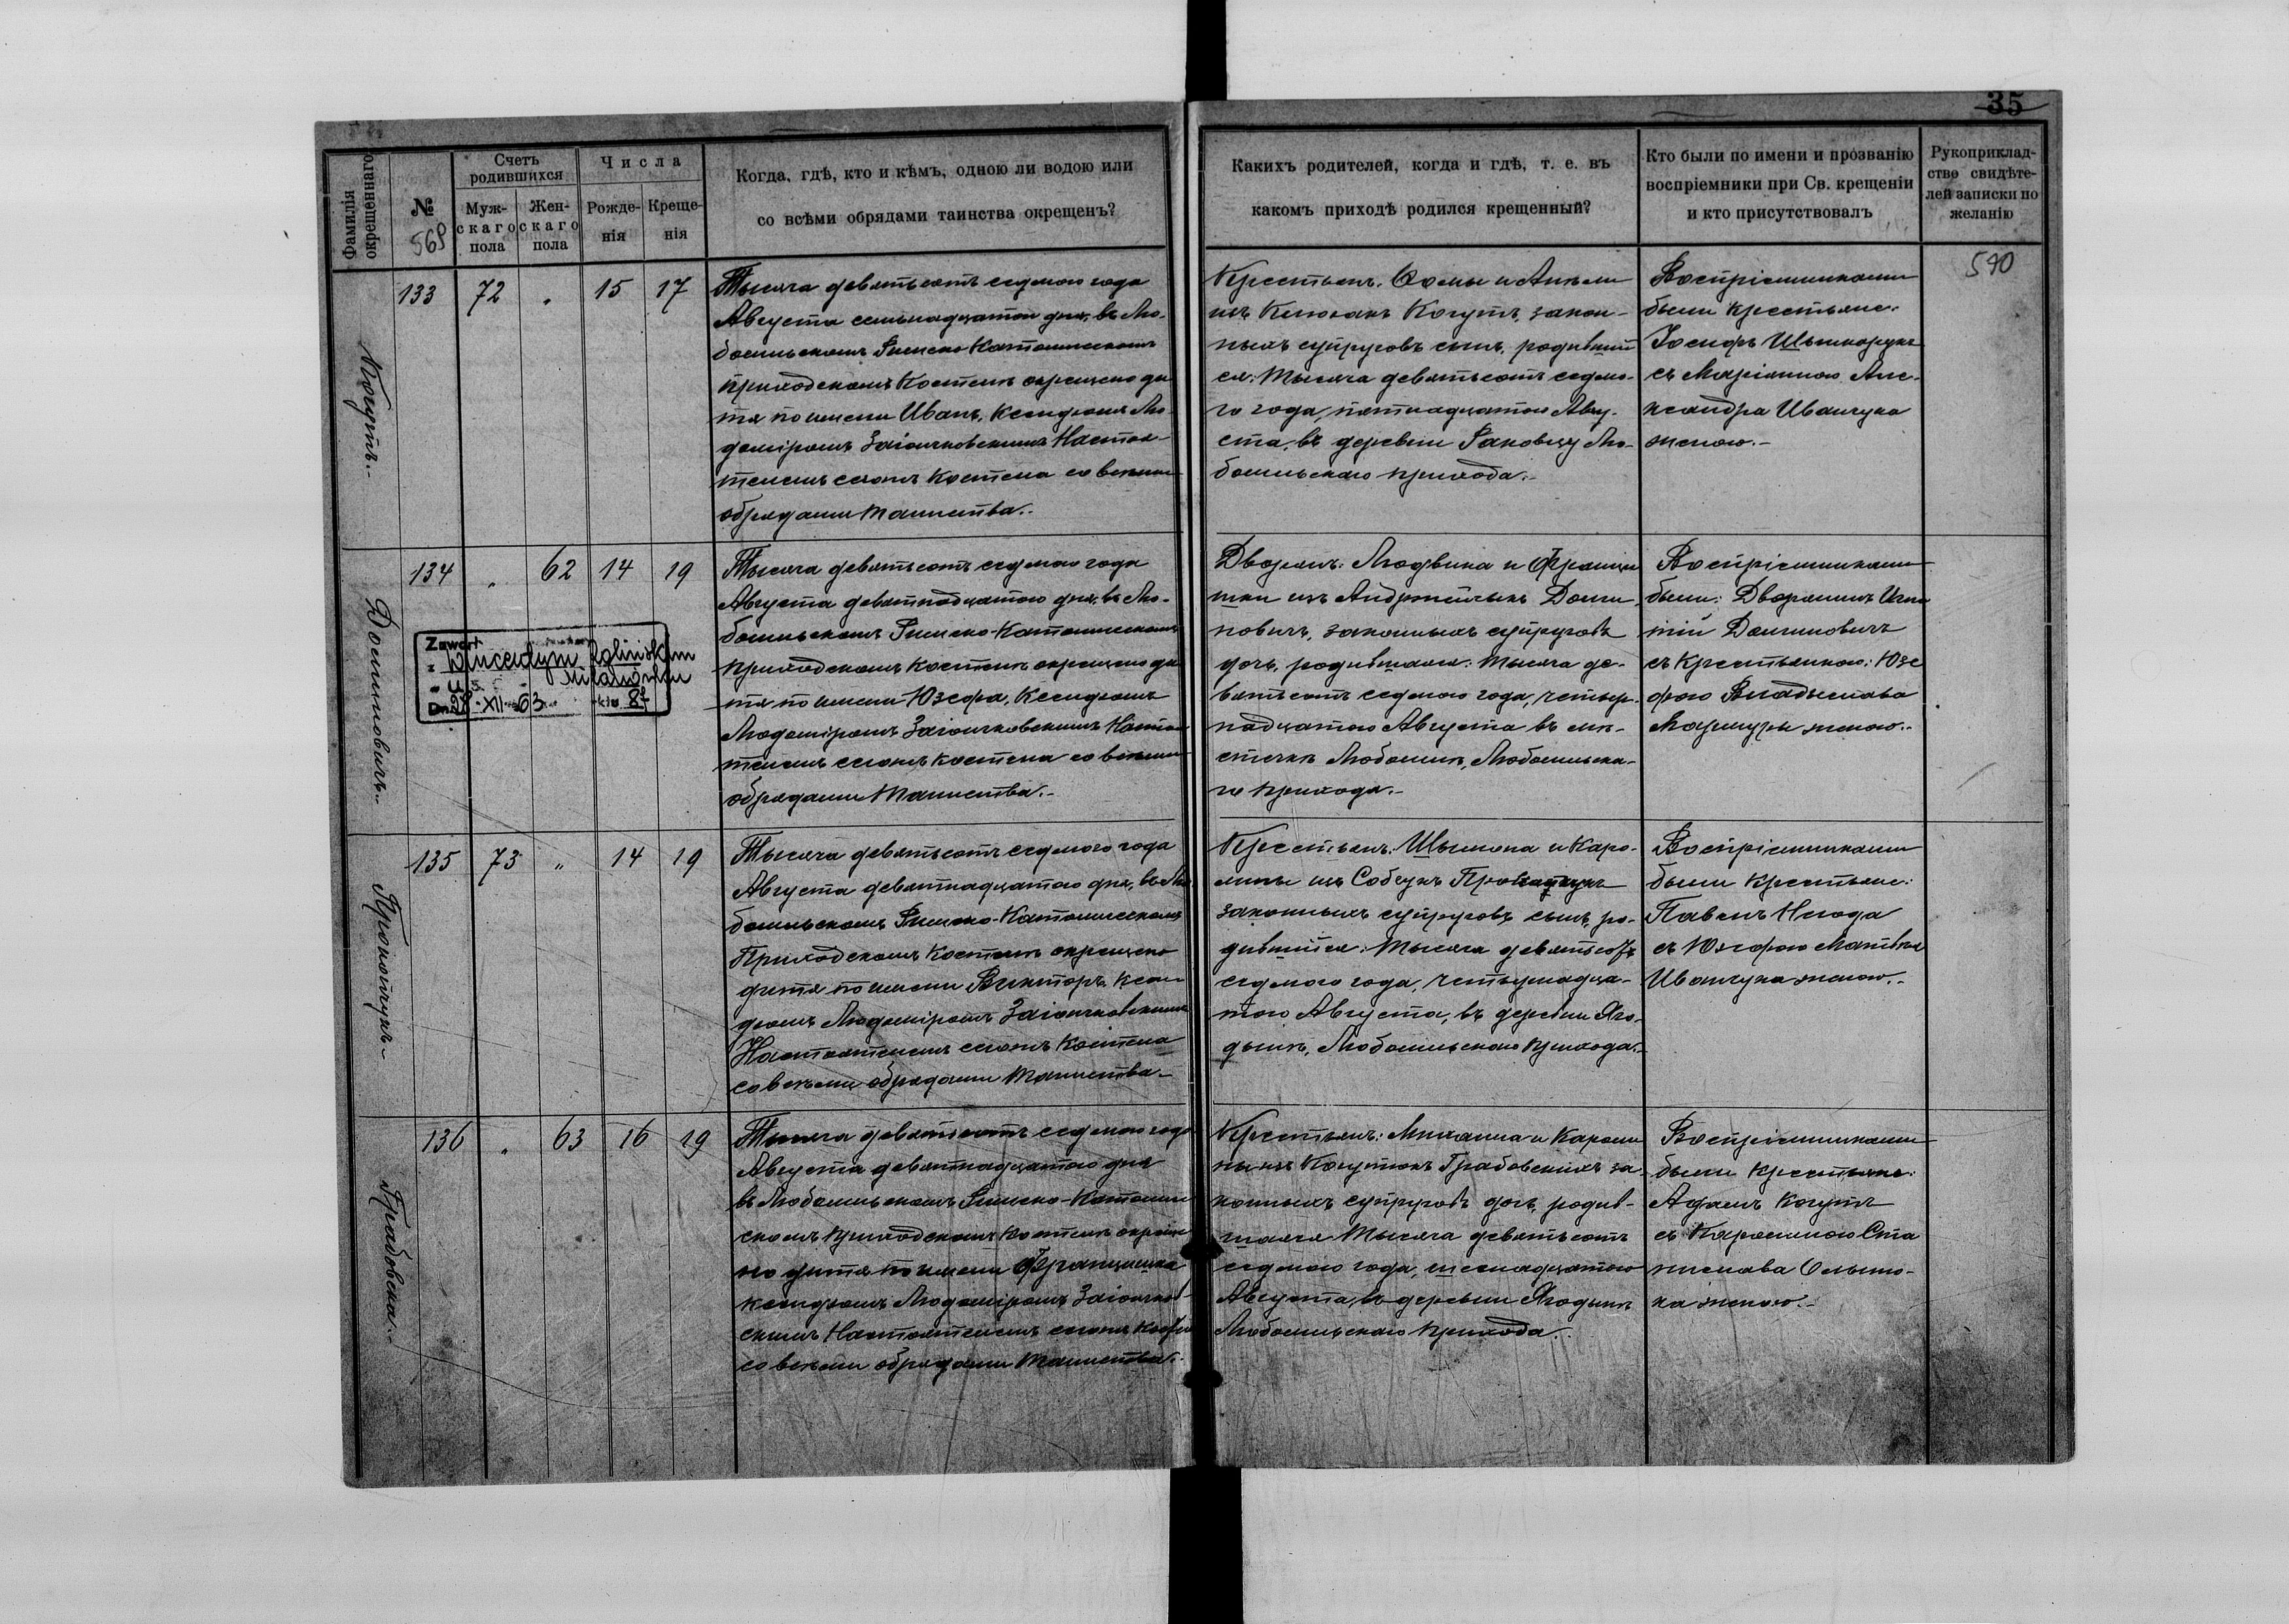 35
Фамилія окрещеннаго
№
568
Счетъ родившихся
Мужскаго пола
Женскаго пола
Числа
Рожденія
Крещенія
Когда, гдѣ, кто и кѣмъ, одною ли водою или
со всѣми обрядами таинства окрещенъ?
Какихъ родителей, когда и гдѣ, т. е. въ
какомъ приходѣ родился крещенный?
Кто были по имени и прозванію
воспріемники при Св. крещеніи
и кто присутствовалъ
Рукоприклад-
ство свидѣте-
лей записки по
желанію
540
Когутъ.
133 72 „ 15 17
Тысяча девятьсотъ седмого года
Августа семьнадцатого дня, въ Лю-
бомльскомъ Римско-Католическомъ
приходскомъ Костелѣ окрещено ди
тя по имени Иванъ, Ксендзомъ Лю-
доміромъ Заіончковскимъ Настоя-
телемъ сего Костела со всѣми
обрядами Таинства.
Крестьянъ: Ѳомы и Анѣли
изъ Когутъ, закон-
ныхъ супруговъ сынъ, родивший
ся: Тысяча девятьсотъ седмо-
го года, пятнадцатого Авгу-
ста, въ деревни Раковцу Лю-
бомльскаго прихода.
Воспріемниками
были крестьяне:
Іосифъ
съ Маріанною Але-
ксандра Иванчука
женою.
Доминовичъ.
134 „ 62 14 19
Тысяча девятьсотъ седмого года
Августа девятнадцатого дня, въ Лю-
бомльскомъ Римско-Католическомъ
приходскомъ костелѣ окрещено ди
тя по имени Юзефа, Ксендзомъ
Людоміромъ Заіончковскимъ Настоя
телемъ сего костела со всѣми
обрядами Таинства.
Дворянъ: Людвика и Францы
шки изъ Доми
новичъ, законныхъ супруговъ
дочь, родившаяся: Тысяча де-
вятьсотъ седмого года, четыр-
надцатого Августа въ мѣ-
стечкѣ Любомлѣ, Любомльска-
го прихода.
Воспріемниками
были: Дворянинъ Игна
тій Доминовичъ
съ Крестьянкою: Юзе
фою Владыслава
Мазмуры женою.
Zawarł
z Wincentym Rolińskim
w u.s. Milanówku
Dn. 28-XII-63 87
Прокопчукъ.
135 73 „ 14 19
Тысяча девятьсотъ седмого года
Августа девятнадцатого дня, въ Лю
бомльскомъ Римско-Католическомъ
Приходскомъ Костелѣ окрещено
дитя по имени Викторъ, Ксен
дзомъ Людоміромъ Заіончковскимъ
Настоятелемъ сего Костела
со всѣми обрядами Таинства.
Крестьянъ: Шымона и Каро-
лины изъ Собчукъ Прокопчукъ
законныхъ супруговъ сынъ, ро-
дившійся: Тысяча девятьсотъ
седмого года, четырнадца-
того Августа, въ деревни Яго-
дынѣ, Любомльскаго прихода.
Воспріемниками
были крестьяне:
Павелъ Негода
съ Юзефою Матвѣя
Иванчука женою.
Грабовска.
136 „ 63 16 19
Тысяча девятьсотъ седмого года
Августа девятнадцатого дня
въ Любомльскомъ Римско-Католиче
скомъ приходскомъ костелѣ окреще
но дитя по имени Францишка
ксендзомъ Людоміромъ Заіончков-
скимъ Настоятелемъ сего Костела
со всѣми обрядами Таинства.
Крестьянъ: Михаила и Кароли
ны изъ Когутовъ Грабовскихъ за-
конныхъ супруговъ дочь, родив-
шаяся Тысяча девятьсотъ
седмого года, шеснадцатого
Августа, въ деревни Ягодынѣ
Любомльскаго прихода.
Воспріемниками
были крестьяне:
Адамъ Когутъ
съ Каролиною Ста
нислава
ка женою.